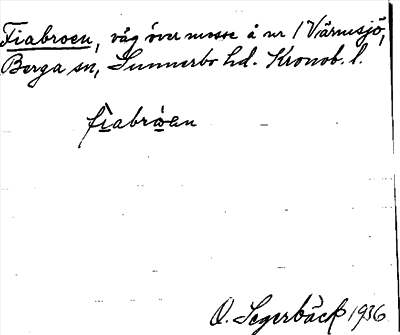 Fiabroen, väg över mosse å nr 1 Värnesjö,
Berga sn, Sunnerbo hd. Kronob. l.
fiabròen
O. Segerbäck 1936